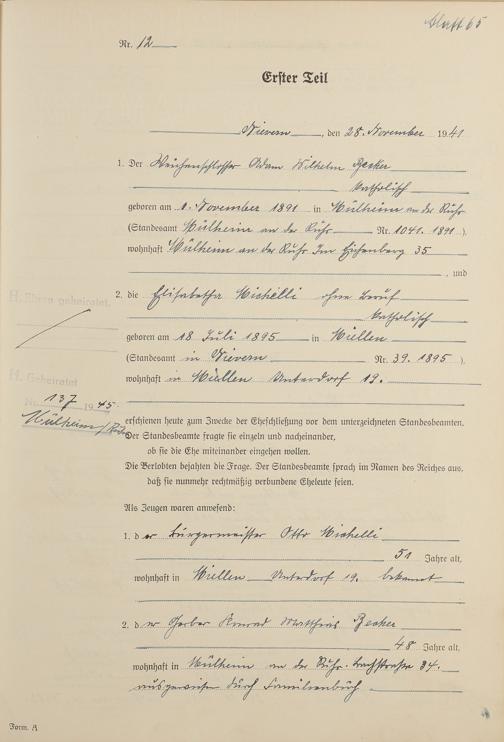 Blatt 65
Nr. 12
Erster Teil
Nievern, den 28. November 1941
1. Der Weichenschlosser Adam Wilhelm Becker
katholisch
geboren am 1. November 1891 in Mülheim an der Ruhr
(Standesamt Mülheim an der Ruhr Nr. 1041. 1891 ).
wohnhaft Mülheim an der Ruhr Im Eichenberg 35
, und
2. die Elisabetha Michelli ohne Beruf
katholisch
geboren am 18 Juli 1895 in Miellen
(Standesamt in Nievern Nr. 39. 1895 ).
wohnhaft in Miellen Unterdorf 19.
H. Ehren geheiratet.
H. Geheiratet
Nr. 137 1945
Mülheim/Ruhr
erschienen heute zum Zwecke der Eheschließung vor dem unterzeichneten Standesbeamten.
Der Standesbeamte fragte sie einzeln und nacheinander,
ob sie die Ehe miteinander eingehen wollen.
Die Verlobten bejahten die Frage. Der Standesbeamte sprach im Namen des Reiches aus,
daß sie nunmehr rechtmäßig verbundene Eheleute seien.
Als Zeugen waren anwesend:
1. der Bürgermeister Otto Michelli
51 Jahre alt,
wohnhaft in Miellen Unterdorf 19. bekannt
2. der Gerber Konrad Matthias Becker
48 Jahre alt,
wohnhaft in Mülheim an der Ruhr. 34.
ausgewiesen durch Familienbuch
Form. A